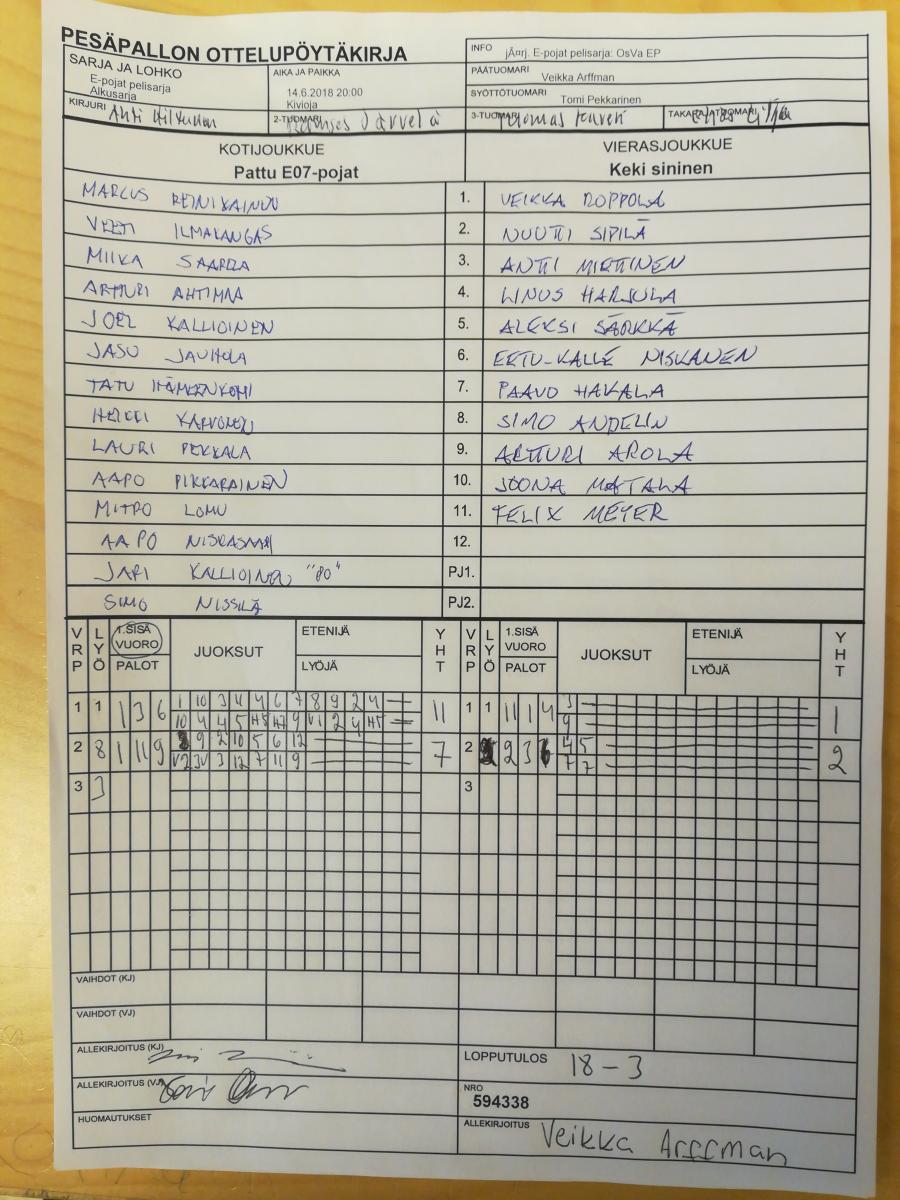 PESÄPALLON OTTELUPÖYTÄKIRJA
SARJA JA LOHKO
E-pojat pelisarja
Alkusarja
AIKA JA PAIKKA
14.6.2018 20:00
Kivioja
INFO jÃ¤rj. E-pojat pelisarja: OsVa EP
PÄÄTUOMARI Veikka Arffman
SYÖTTÖTUOMARI Tomi Pekkarinen
KIRJURI
2-TUOMARI Järvelä
3-TUOMARI Tuomas
TAKARAJATUOMARI
KOTIJOUKKUE
Pattu E07-pojat
VIERASJOUKKUE
Keki sininen
MARCUS REINIKAINEN 1. VEIKKA ROPPOLA
VEETI ILMAKANGAS 2. NUUTTI SIPILÄ
MIIKA SAARELA 3. ANTTI MIETTINEN
ARTTURI AHTIMAA 4. LINUS HARJULA
JOEL KALLIOINEN 5. ALEKSI SÄRKKÄ
JASU JAUHOLA 6. EETU-KALLE NISKANEN
TATU HÄMEENKORPI 7. PAAVO HAKALA
HEIKKI KARVONEN 8. SIMO ANDELIN
LAURI PEKKALA 9. ARTTURI AROLA
AAPO PIKKARAINEN 10. JOONA MATALA
MITRO LOMU 11. FELIX MEYER
AAPO NISKASAARI 12.
JARI KALLIOINEN "80" PJ1.
SIMO NISSILÄ PJ2.
VRP LYÖ 1.SISÄ VUORO PALOT JUOKSUT ETENIJÄ LYÖJÄ YHT VRP LYÖ 1.SISÄ VUORO PALOT JUOKSUT ETENIJÄ LYÖJÄ YHT
1 1 1 3 6 1 10 3 11 4 6 7 8 9 2 4 11 1 1 11 1 4 3 1
10 4 4 5 H5 H7 9 V1 2 4 H5 9
2 8 1 11 9 8 9 2 10 5 6 12 7 2 2 3 6 4 5 2
V2 3V 3 12 7 11 9 7 7
3 3 3
VAIHDOT (KJ)
VAIHDOT (VJ)
ALLEKIRJOITUS (KJ)
LOPPUTULOS 18-3
ALLEKIRJOITUS (VJ)
NRO
594338
HUOMAUTUKSET
ALLEKIRJOITUS Veikka Arffman